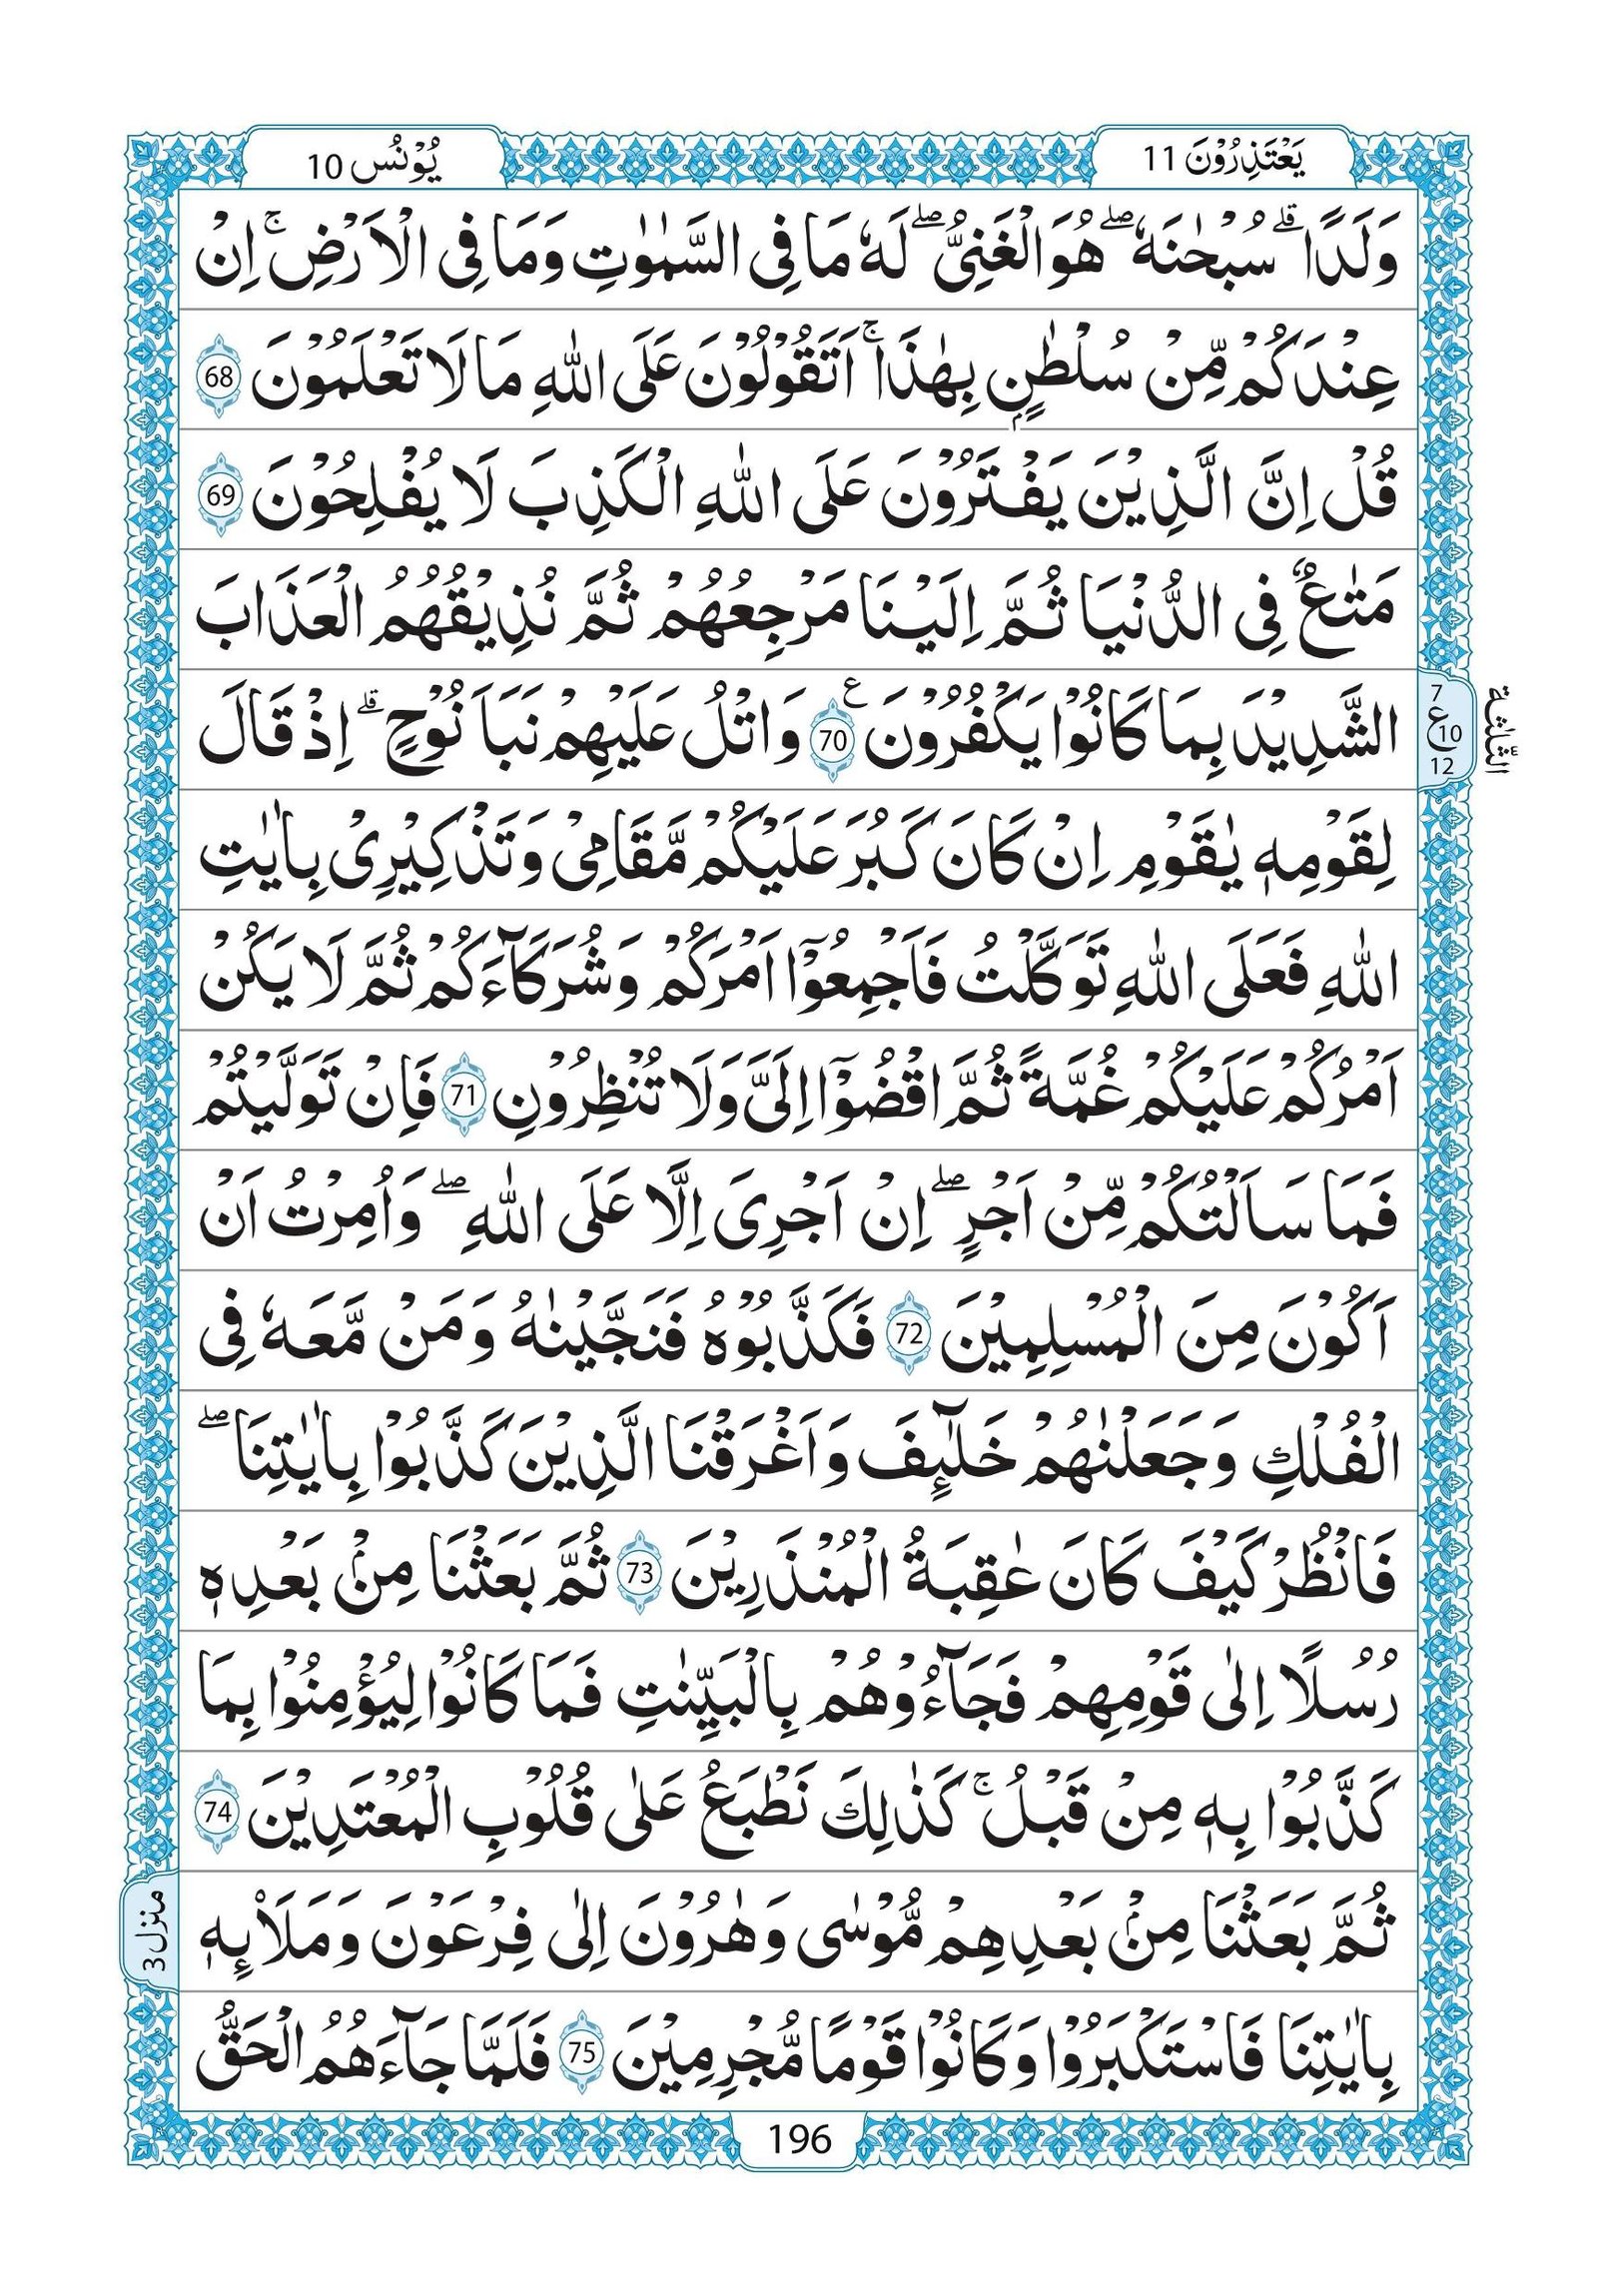 يَعْتَذِرُوْنَ 11
يُوْنُس 10
وَلَدًا ۙ سُبْحٰنَهٗ ؕ هُوَ الْغَنِىُّ ؕ لَهٗ مَا فِى السَّمٰوٰتِ وَمَا فِى الْاَرْضِ ۚ اِنْ
عِنْدَكُمْ مِّنْ سُلْطٰنٍۭ بِهٰذَا ۚ اَتَقُوْلُوْنَ عَلَى اللّٰهِ مَا لَا تَعْلَمُوْنَ 68
قُلْ اِنَّ الَّذِيْنَ يَفْتَرُوْنَ عَلَى اللّٰهِ الْكَذِبَ لَا يُفْلِحُوْنَ 69
مَتٰعٌ فِى الدُّنْيَا ثُمَّ اِلَيْنَا مَرْجِعُهُمْ ثُمَّ نُذِيْقُهُمُ الْعَذَابَ
الشَّدِيْدَ بِمَا كَانُوْا يَكْفُرُوْنَ ع 70 وَاتْلُ عَلَيْهِمْ نَبَاَ نُوْحٍ ۘ اِذْ قَالَ
7
ع 10
12
الثلٰثة
لِقَوْمِهٖ يٰقَوْمِ اِنْ كَانَ كَبُرَ عَلَيْكُمْ مَّقَامِىْ وَتَذْكِيْرِىْ بِاٰيٰتِ
اللّٰهِ فَعَلَى اللّٰهِ تَوَكَّلْتُ فَاَجْمِعُوْٓا اَمْرَكُمْ وَشُرَكَآءَكُمْ ثُمَّ لَا يَكُنْ
اَمْرُكُمْ عَلَيْكُمْ غُمَّةً ثُمَّ اقْضُوْٓا اِلَىَّ وَلَا تُنْظِرُوْنِ 71 فَاِنْ تَوَلَّيْتُمْ
فَمَا سَاَلْتُكُمْ مِّنْ اَجْرٍ ؕ اِنْ اَجْرِىَ اِلَّا عَلَى اللّٰهِ ۖ وَاُمِرْتُ اَنْ
اَكُوْنَ مِنَ الْمُسْلِمِيْنَ 72 فَكَذَّبُوْهُ فَنَجَّيْنٰهُ وَمَنْ مَّعَهٗ فِى
الْفُلْكِ وَجَعَلْنٰهُمْ خَلٰٓئِفَ وَاَغْرَقْنَا الَّذِيْنَ كَذَّبُوْا بِاٰيٰتِنَا ۖ
فَانْظُرْ كَيْفَ كَانَ عٰقِبَةُ الْمُنْذَرِيْنَ 73 ثُمَّ بَعَثْنَا مِنْۢ بَعْدِهٖ
رُسُلًا اِلٰى قَوْمِهِمْ فَجَآءُوْهُمْ بِالْبَيِّنٰتِ فَمَا كَانُوْا لِيُؤْمِنُوْا بِمَا
كَذَّبُوْا بِهٖ مِنْ قَبْلُ ۚ كَذٰلِكَ نَطْبَعُ عَلٰى قُلُوْبِ الْمُعْتَدِيْنَ 74
ثُمَّ بَعَثْنَا مِنْۢ بَعْدِهِمْ مُّوْسٰى وَهٰرُوْنَ اِلٰى فِرْعَوْنَ وَمَلَا۟ئِهٖ
منزل 3
بِاٰيٰتِنَا فَاسْتَكْبَرُوْا وَكَانُوْا قَوْمًا مُّجْرِمِيْنَ 75 فَلَمَّا جَآءَهُمُ الْحَقُّ
196